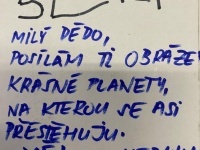 MILÝ DĚDO,
POSÍLÁM TI OBRÁZE
KRÁSNÉ PLANETY,
NA KTEROU SE ASI
PŘESTĚHUJU.